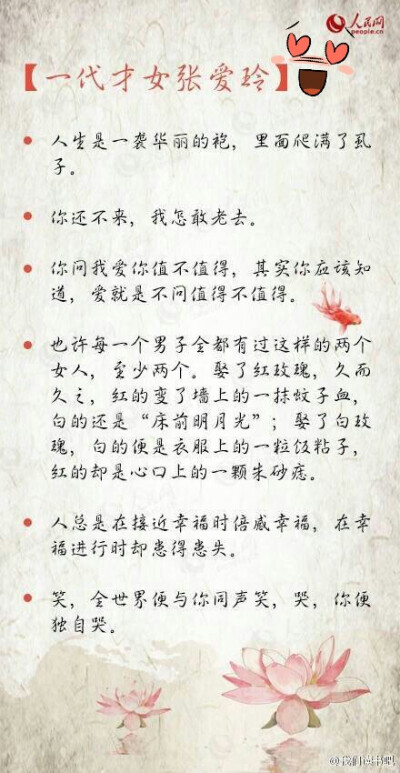 人民网
people.cn
【一代才女张爱玲】
人生是一袭华丽的袍，里面爬满了虱
子。
你还不来，我怎敢老去。
你问我爱你值不值得，其实你应该知
道，爱就是不问值得不值得。
也许每一个男子全都有过这样的两个
女人，至少两个。娶了红玫瑰，久而
久之，红的变了墙上的一抹蚊子血，
白的还是“床前明月光”；娶了白玫
瑰，白的便是衣服上的一粒饭粘子，
红的却是心口上的一颗朱砂痣。
人总是在接近幸福时倍感幸福，在幸
福进行时却患得患失。
笑，全世界便与你同声笑，哭，你便
独自哭。
@我们